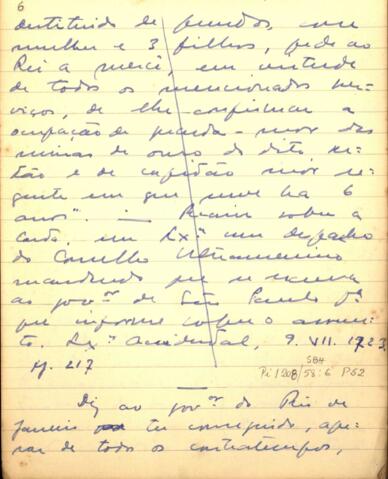 6
destituido de fundos, com
mulher e 3 filhos, pede ao
Rei a mercê, em virtude
de todos os mencionados ser-
viços, de lhe confirmar a
ocupação de guarda-mor das
minas de ouro do dito ser-
tão e de capitão mor re-
gente em que serve ha 6
anos". — Recaiu sobre a
carta, em Lxª um despacho
do Conselho Ultramarino
mandando que se escreva
ao govᵒʳ de São Paulo pª
que informe sobre o assun-
to. Lxª occidental, 9. VII. 1723.
fl. 217
584
Pi/208/58:6 P.52
Diz ao govᵒʳ do Rio de
Janeiro ter conseguido, ape-
sar de todos os contratempos,